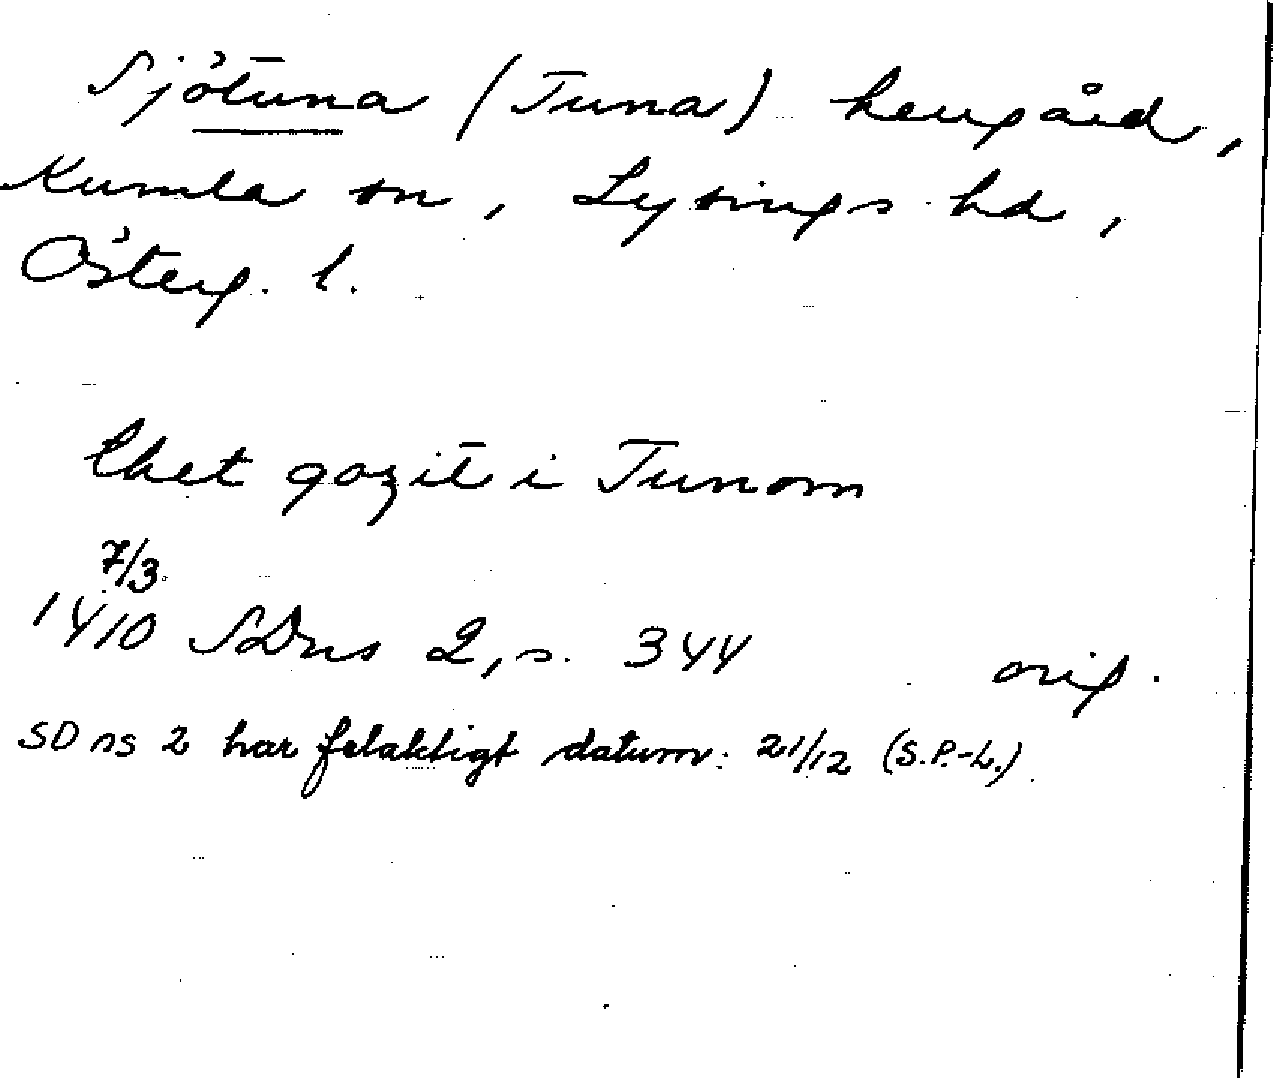 Sjötuna (Tuna) herrgård,
Kumla sn, Lysings hd,
Österg. l.
thet gozit i Tunom
7/3
1410 SDns 2, s. 344 orig.
SD ns 2 har felaktigt datum: 21/12 (S.P.-L.)